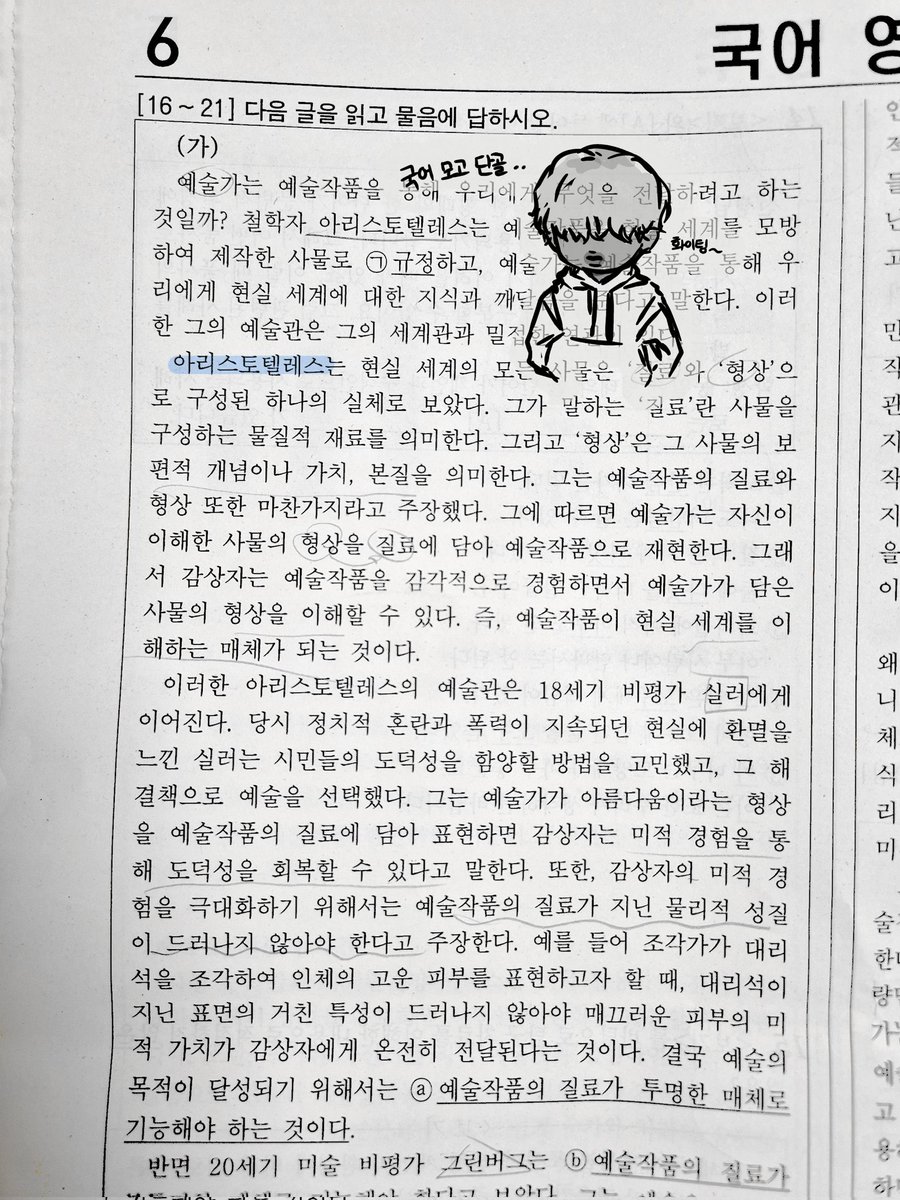 6
국어 영
[16～21] 다음 글을 읽고 물음에 답하시오.
(가)
국어 모고 단골..
예술가는 예술작품을 통해 우리에게 무엇을 전달하려고 하는
것일까? 철학자 아리스토텔레스는 예술작품을 현실 세계를 모방
화이팅~
하여 제작한 사물로 ㉠규정하고, 예술가는 예술작품을 통해 우
리에게 현실 세계에 대한 지식과 깨달음을 준다고 말한다. 이러
한 그의 예술관은 그의 세계관과 밀접한 연관이 있다.
아리스토텔레스는 현실 세계의 모든 사물은 ‘질료’와 ‘형상’으
로 구성된 하나의 실체로 보았다. 그가 말하는 ‘질료’란 사물을
구성하는 물질적 재료를 의미한다. 그리고 ‘형상’은 그 사물의 보
편적 개념이나 가치, 본질을 의미한다. 그는 예술작품의 질료와
형상 또한 마찬가지라고 주장했다. 그에 따르면 예술가는 자신이
이해한 사물의 형상을 질료에 담아 예술작품으로 재현한다. 그래
서 감상자는 예술작품을 감각적으로 경험하면서 예술가가 담은
사물의 형상을 이해할 수 있다. 즉, 예술작품이 현실 세계를 이
해하는 매체가 되는 것이다.
이러한 아리스토텔레스의 예술관은 18세기 비평가 실러에게
이어진다. 당시 정치적 혼란과 폭력이 지속되던 현실에 환멸을
느낀 실러는 시민들의 도덕성을 함양할 방법을 고민했고, 그 해
결책으로 예술을 선택했다. 그는 예술가가 아름다움이라는 형상
을 예술작품의 질료에 담아 표현하면 감상자는 미적 경험을 통
해 도덕성을 회복할 수 있다고 말한다. 또한, 감상자의 미적 경
험을 극대화하기 위해서는 예술작품의 질료가 지닌 물리적 성질
이 드러나지 않아야 한다고 주장한다. 예를 들어 조각가가 대리
석을 조각하여 인체의 고운 피부를 표현하고자 할 때, 대리석이
지닌 표면의 거친 특성이 드러나지 않아야 매끄러운 피부의 미
적 가치가 감상자에게 온전히 전달된다는 것이다. 결국 예술의
목적이 달성되기 위해서는 ⓐ예술작품의 질료가 투명한 매체로
기능해야 하는 것이다.
반면 20세기 미술 비평가 그린버그는 ⓑ예술작품의 질료가